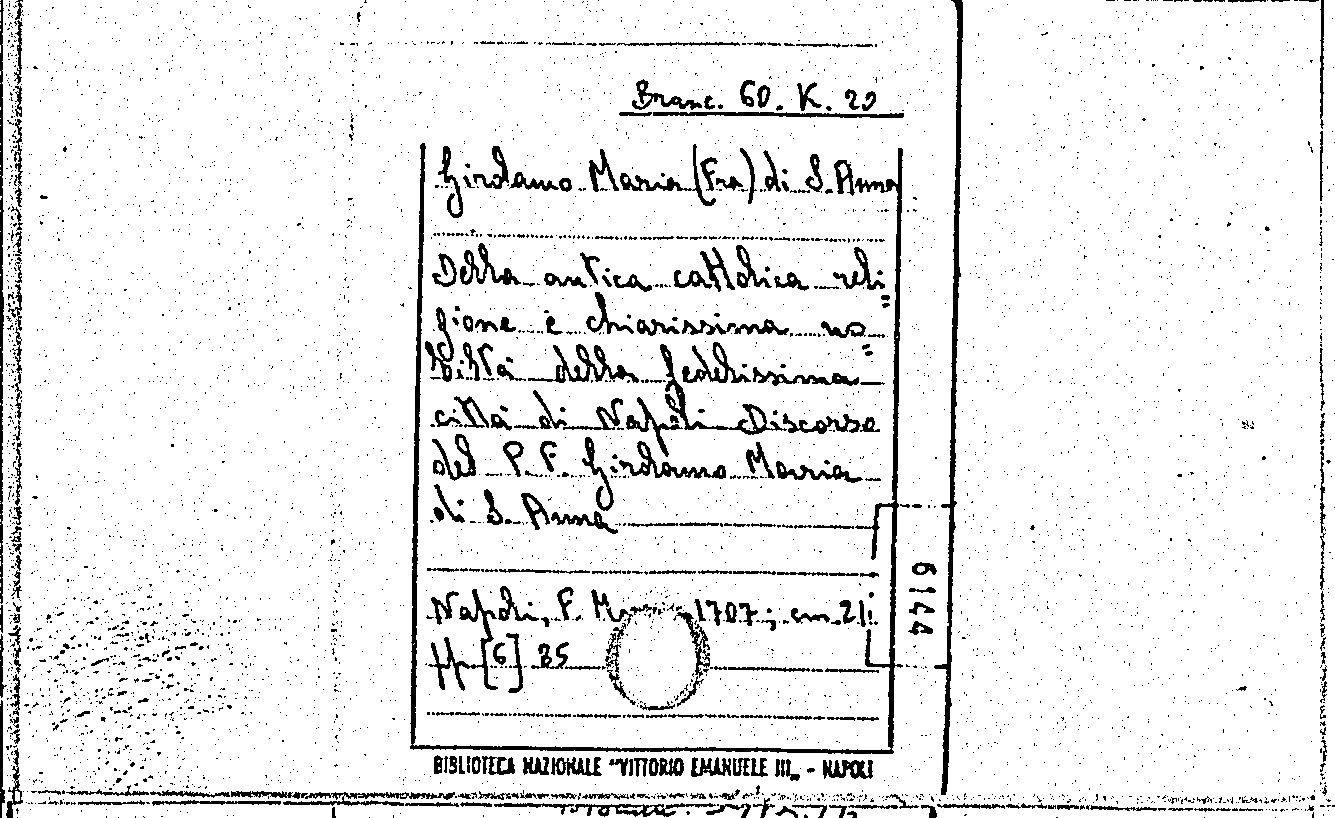 Branc. 60. K. 29
Girolamo Maria (Fra) di S. Anna
Della antica cattolica reli=
gione e chiarissima no=
biltà della fedelissima
città di Napoli Discorso
del P. F. Girolamo Maria
di S. Anna
Napoli, F. 1707; cm 21;
pp [6] 85
6144
BIBLIOTECA NAZIONALE "VITTORIO EMANUELE III„ - NAPOLI